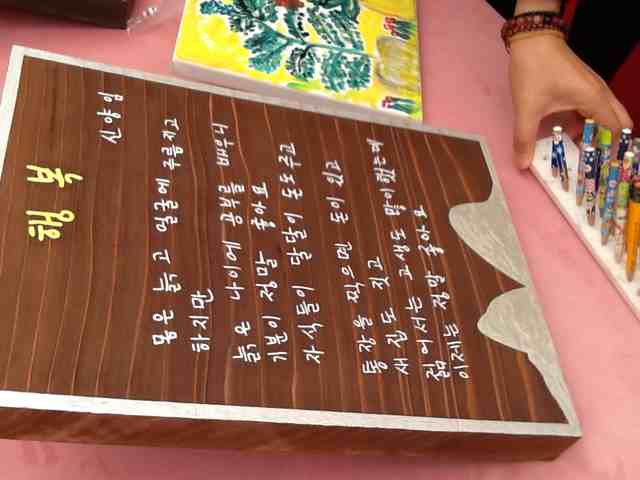 행복
신양임
몸은 늙고 얼굴에 주름지고
하지만
늙은 나이에 공부를 배우니
기분이 정말 좋아요
자식들이 달달이 돈도 주고
통장을 찍으면 돈이 있고
새집도 짓고
젊어서는 고생도 많이 했는데
이제는 정말 좋아요